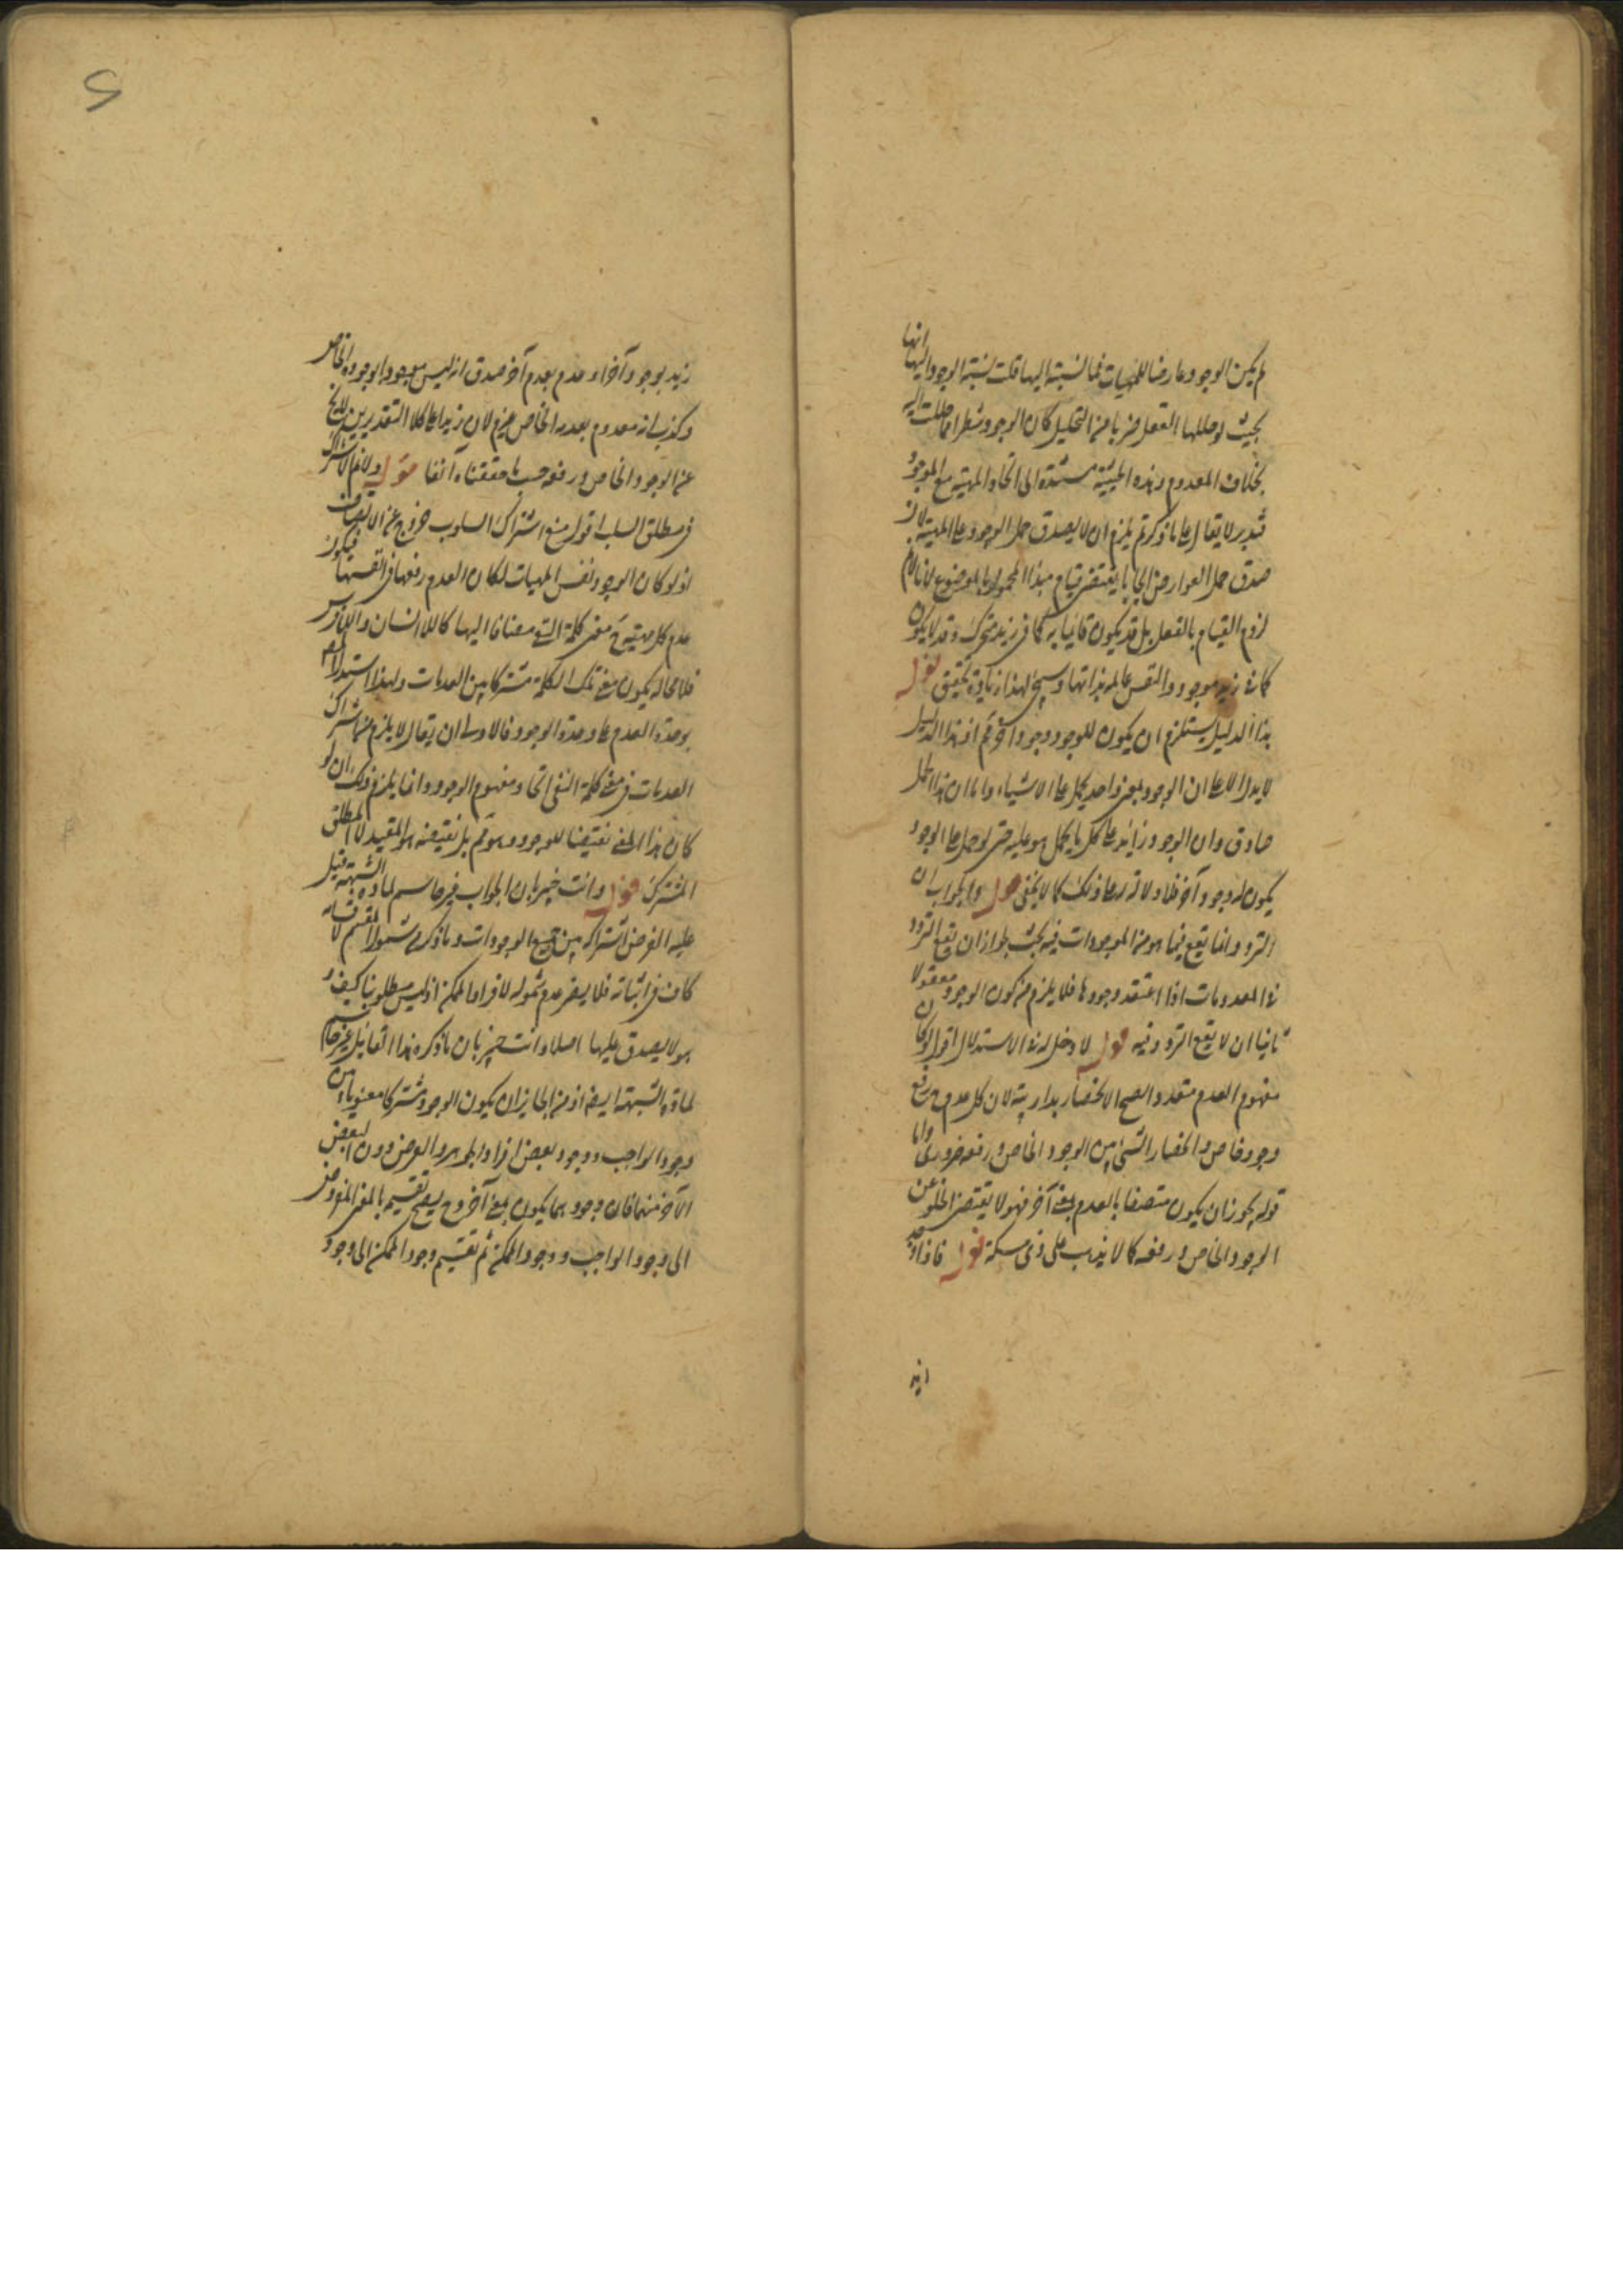 لم يكن الوجود عارضا للمهيات فما نسبته اليها قلت نسبة الوجود اليها انها
بحيث لو حللها العقل ضربا من التحليل كان الوجود شطرا مما حللت اليه
بخلاف المعدوم وهذه الحيثية مستندة الى اتحاد المهية مع الموجود
فتدبر لا يقال على ما ذكرتم يلزم ان لا يصدق حمل الوجود على المهية لان
صدق حمل العوارض ايجابا يقتضى قيام مبدأ المحمول بالموضوع لانا نقول
لزوم القيام بالفعل بل قد يكون قائما به كما فى زيد متحرك وقد لا يكون
كما فى زيد موجود والنفس عالمة بذاتها وسيجئ لهذا زيادة تحقيق قوله
هذا الدليل يستلزم ان يكون للوجود وجود آخر اذ هذا الدليل
لا يدل الا على ان الوجود بمعنى واحد يحمل على الاشياء واما ان هذا الحمل
صادق وان الوجود زايد على كل ما يحمل هو عليه حتى لو حمل على الوجود
يكون له وجود آخر فلا ولا تدل على ذلك كما لا يخفى قوله والجواب ان
التردد انما يقع فيما هو من الموجودات فيه بحث لجواز ان يقع التردد
فى المعدومات اذا اعتقد وجودها فلا يلزم من كون الوجود معقولا
ثانيا ان لا يقع التردد فيه قوله لا دخل له فى الاستدلال اقول لو كان
مفهوم العدم متعددا لصح الانحصار بداهة لان كل عدم رفع
وجود خاص وانحصار الشئ بين الوجود الخاص ورفعه ضرورى واما
قوله يجوز ان يكون متصفا بالعدم بمعنى آخر فهو لا يقتضى الخلو عن
الوجود الخاص ورفعه كما لا يذهب على ذى مسكة قوله فاذا وجد
زيد
زيد بوجود آخر او عدم بعدم آخر صدق انه ليس موجودا بوجوده الخاص
وكذب انه معدوم بعدمه الخاص لان زيدا على كلا التقديرين لا يخلو
عن الوجود الخاص ورفعه حسب ما حققناه آنفا قوله ولا نم الاشتراك
فى مطلق السلب اقول منع اشتراك السلوب خروج عن الانصاف
اذ لو كان الوجود نفس المهيات لكان العدم رفعها فى انفسها فيكون
عدم كل مهية معنى كلمة النفى مضافا اليها كاللاانسان واللافرس
فلا محالة يكون معنى تلك الكلمة مشتركا بين العدمات ولهذا استدل
بوحدة العدم على وحدة الوجود فالاولى ان يقال لا يلزم من اشتراك
العدمات فى معنى كلمة النفى اتحاد مفهوم الوجود وانما يلزم ذلك ان لو
كان هذا المعنى نقيضا للوجود وهو ثم بل نقيضه هو المقيد لا المطلق
المشترك قوله وانت خبير بان الجواب غير حاسم لمادة الشبهة قيل
عليه الغرض اشتراكه بين جميع الوجودات وما ذكره شمول المقسم لا قسامه
كاف فى اثباته فلا يضر عدم شموله لافراد الممكن اذ ليس مطلوبنا كيف و
هو لا يصدق عليها اصلا وانت خبير بان ما ذكره هذا القائل غير حاسم
لمادة الشبهة ايضا اذ من الجايز ان يكون الوجود مشتركا معنويا بين
وجود الواجب ووجود بعض افراد الجوهر والعرض دون البعض
الآخر منهما فان وجودهما يكون بمعنى آخر وح يصح تقسيم بالمعنى المفروض
الى وجود الواجب ووجود الممكن ثم تقسيم وجود الممكن الى وجود